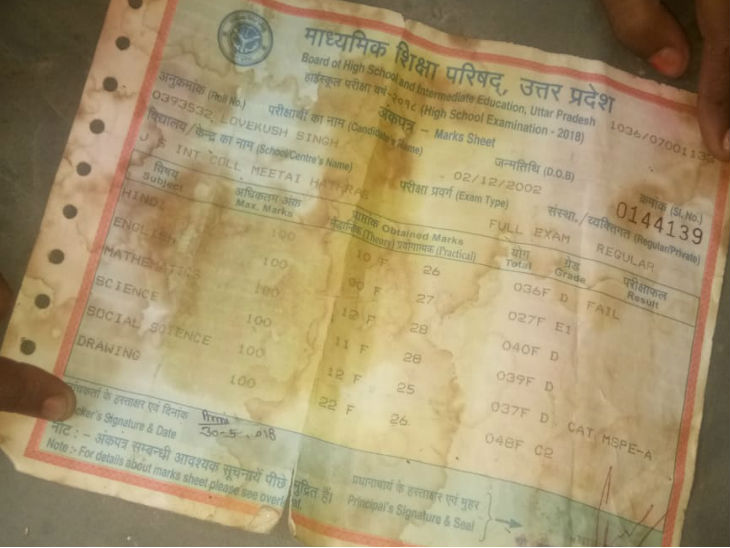 माध्यमिक शिक्षा परिषद्, उत्तर प्रदेश
Board of High School and Intermediate Education, Uttar Pradesh
हाईस्कूल परीक्षा वर्ष-२०१८ (High School Examination - 2018)
1036/07001132
अंकपत्र – Marks Sheet
अनुक्रमांक (Roll No.)
परीक्षार्थी का नाम (Candidate's Name)
जन्मतिथि (D.O.B)
क्रमांक (Sl. No.)
0393532 LOVEKUSH SINGH
02/12/2002
0144139
विद्यालय/केन्द्र का नाम (School/Centre's Name)
परीक्षा प्रवर्ग (Exam Type)
संस्था./व्यक्तिगत (Regular/Private)
J S INT COLL MEETAI HATHRAS
FULL EXAM REGULAR
विषय Subject
अधिकतम अंक Max. Marks
प्राप्तांक Obtained Marks
सैद्धान्तिक (Theory) प्रयोगात्मक (Practical)
योग Total
ग्रेड Grade
परीक्षाफल Result
HINDI 100 10 F 26 036F D FAIL
ENGLISH 100 00 F 27 027F E1
MATHEMATICS 100 12 F 28 040F D
SCIENCE 100 11 F 28 039F D
SOCIAL SCIENCE 100 12 F 25 037F D CAT MSPE-A
DRAWING 100 22 F 26 048F C2
के हस्ताक्षर एवं दिनांक
Signature & Date
प्रधानाचार्य के हस्ताक्षर एवं मुहर
Principal's Signature & Seal
नोट :- अंकपत्र सम्बन्धी आवश्यक सूचनायें पीछे मुद्रित हैं।
Note :- For details about marks sheet please see overleaf.